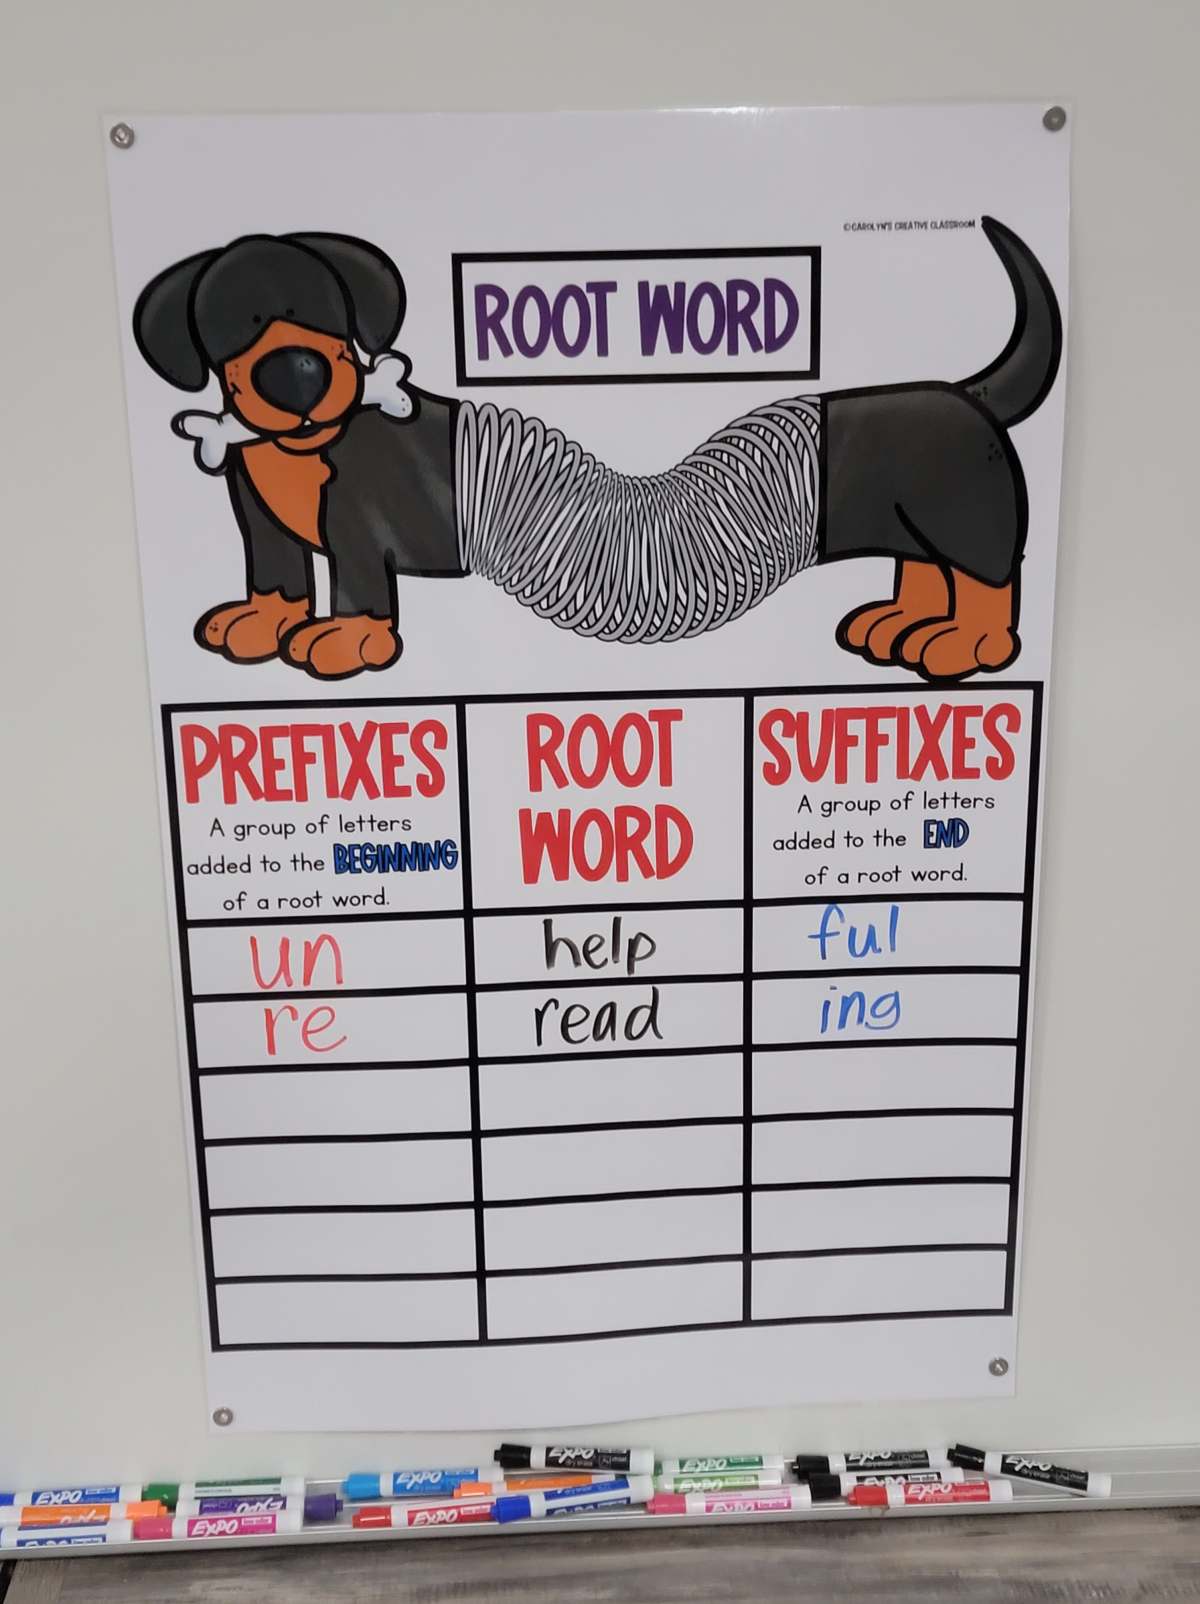 ©CAROLYN'S CREATIVE CLASSROOM
ROOT WORD
PREFIXES
A group of letters
added to the BEGINNING
of a root word.
ROOT
WORD
SUFFIXES
A group of letters
added to the END
of a root word.
un help ful
re read ing
EXPO
EXPO
EXPO
EXPO
EXPO
EXPO
EXPO
EXPO
EXPO
EXPO
EXPO
EXPO
EXPO
EXPO